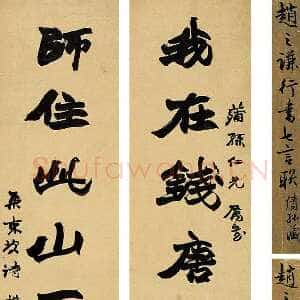 趙之謙行書七言聯
我在錢唐
蒲孫仁兄屬
師住此山
集東坡詩
趙
Shufawang.CN